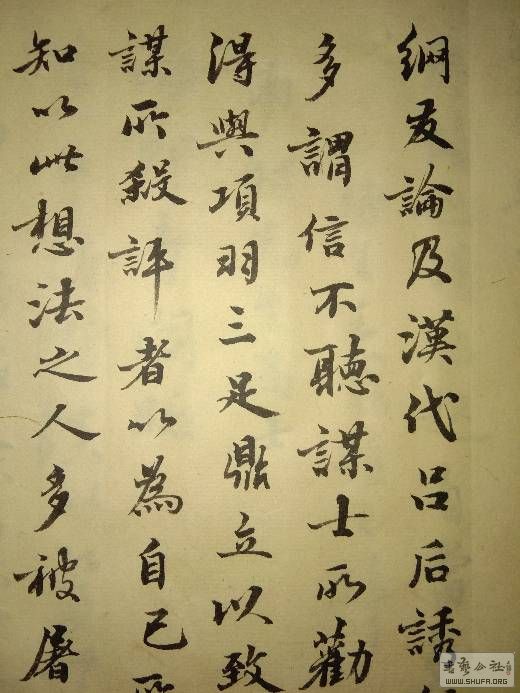 網友論及漢代呂后誘
多謂信不聽謀士所勸
得與項羽三足鼎立以致
謀所殺評者以為自己所
知以此想法之人多被屠
書藝公社
WWW.SHUFA.ORG